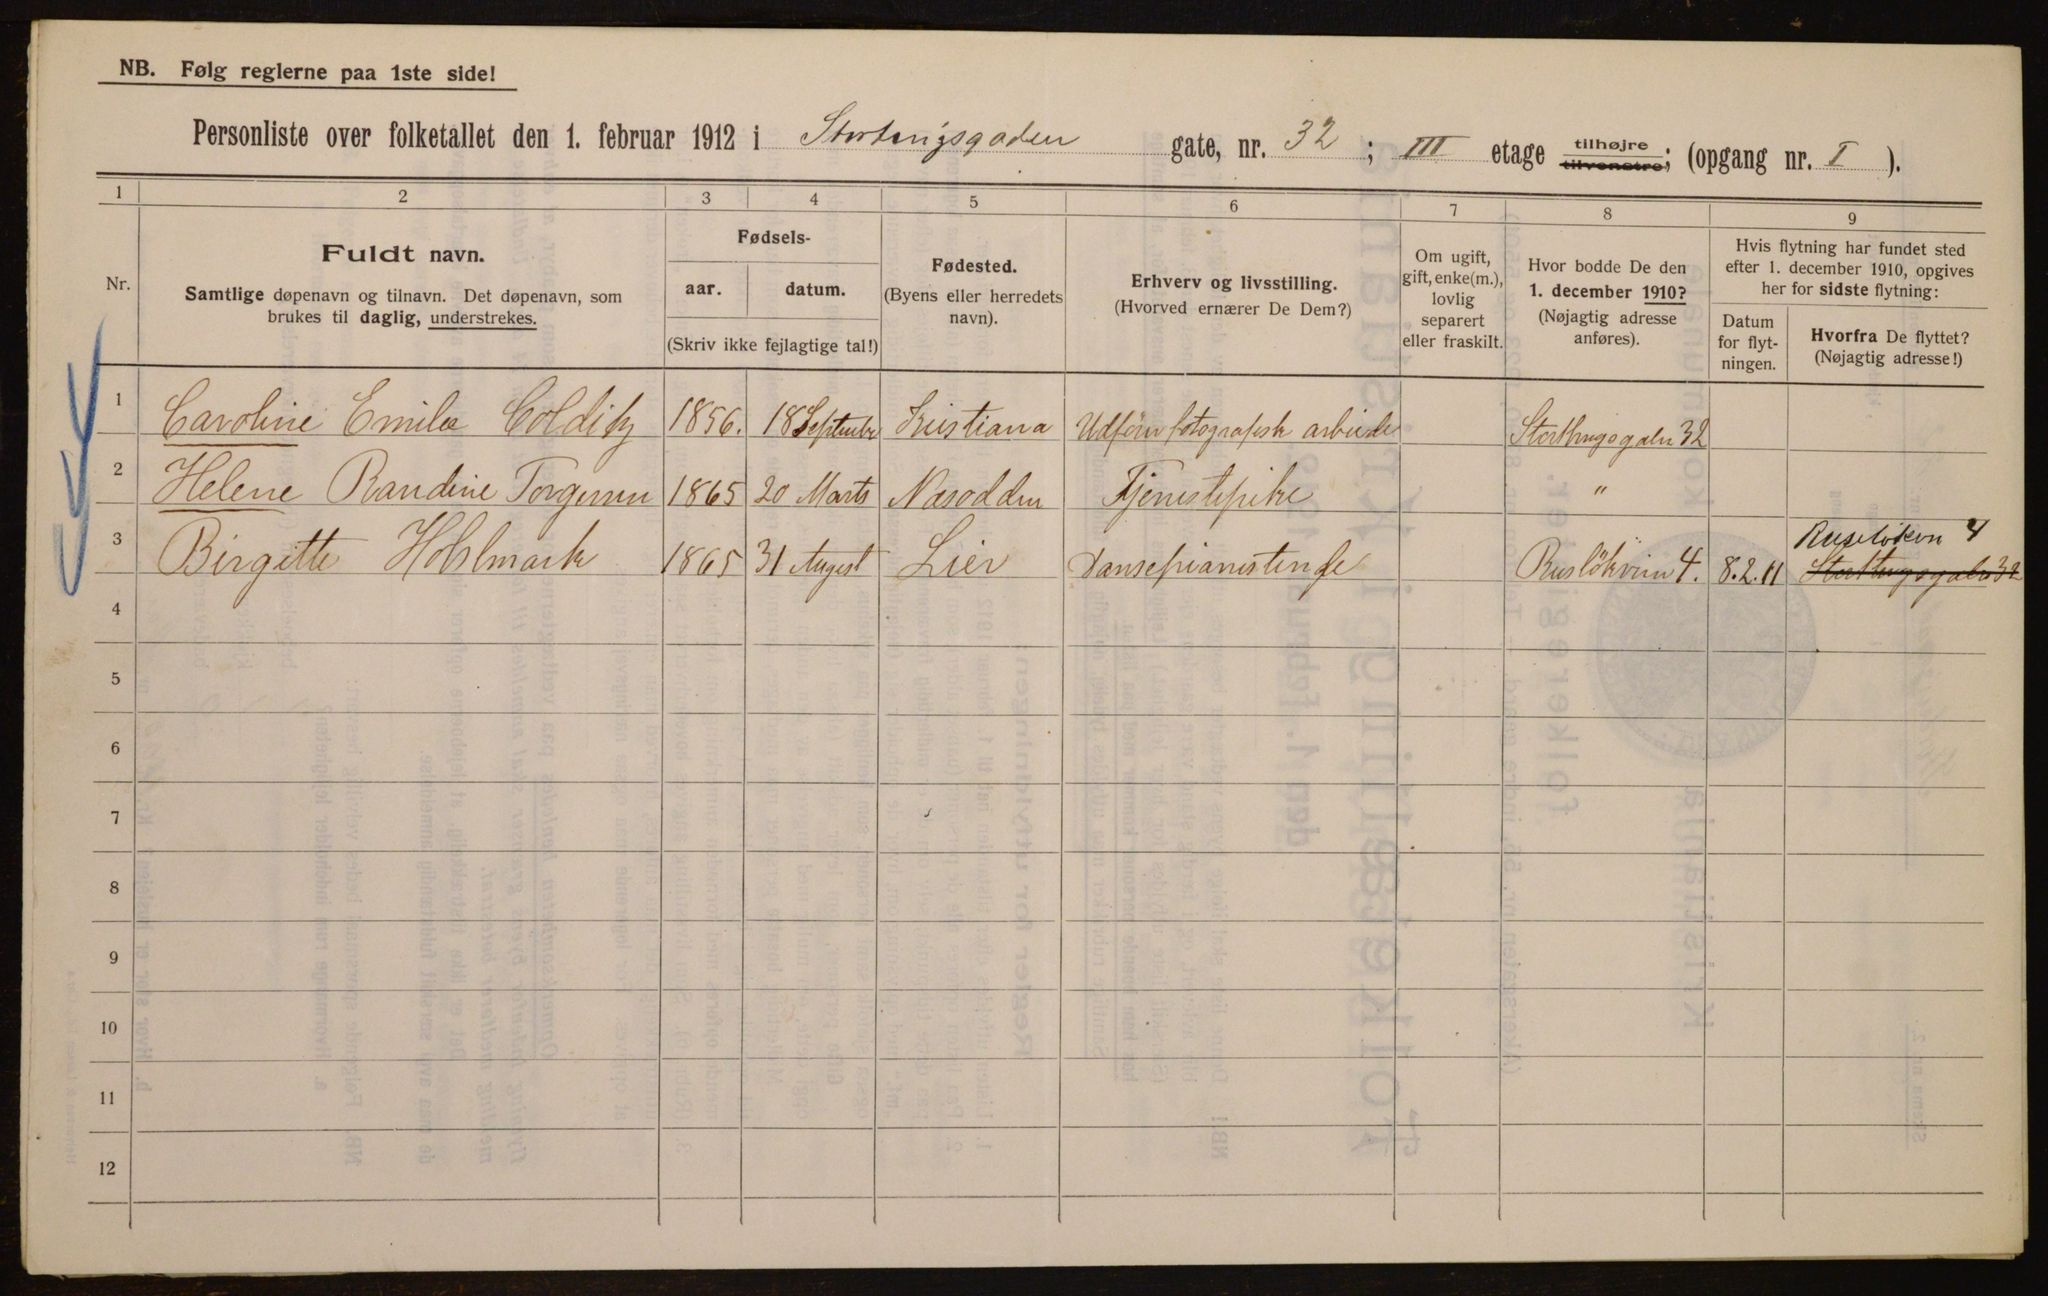 NB. Følg reglerne paa 1ste side!
Personliste over folketallet den 1. februar 1912 i Stortingsgaden gate, nr. 32 ; III etage tilhøjre tilvenstre; (opgang nr. I ).
1 2 3 4 5 6 7 8 9
Nr.
Fuldt navn.
Samtlige døpenavn og tilnavn. Det døpenavn, som
brukes til daglig, understrekes.
Fødsels-
aar. datum.
(Skriv ikke fejlagtige tal!)
Fødested.
(Byens eller herredets
navn).
Erhverv og livsstilling.
(Hvorved ernærer De Dem?)
Om ugift,
gift, enke(m.),
lovlig
separert
eller fraskilt.
Hvor bodde De den
1. december 1910?
(Nøjagtig adresse
anføres).
Hvis flytning har fundet sted
efter 1. december 1910, opgives
her for sidste flytning:
Datum
for flyt-
ningen.
Hvorfra De flyttet?
(Nøjagtig adresse!)
1 Caroline Emilie Colditz 1856. 18 September Kristiana Udfører fotografisk arbeide Storthingsgaden 32
2 Helene Randine Torgersen 1865 20 Marts Næsodden Tjenestepike "
3 Birgitte Holmark 1865 31 August Lier Dansepianistinde Rusløkvein 4. 8.2.11 Ruseløkvn 4
Storthingsgaden 32
4
5
6
7
8
9
10
11
12